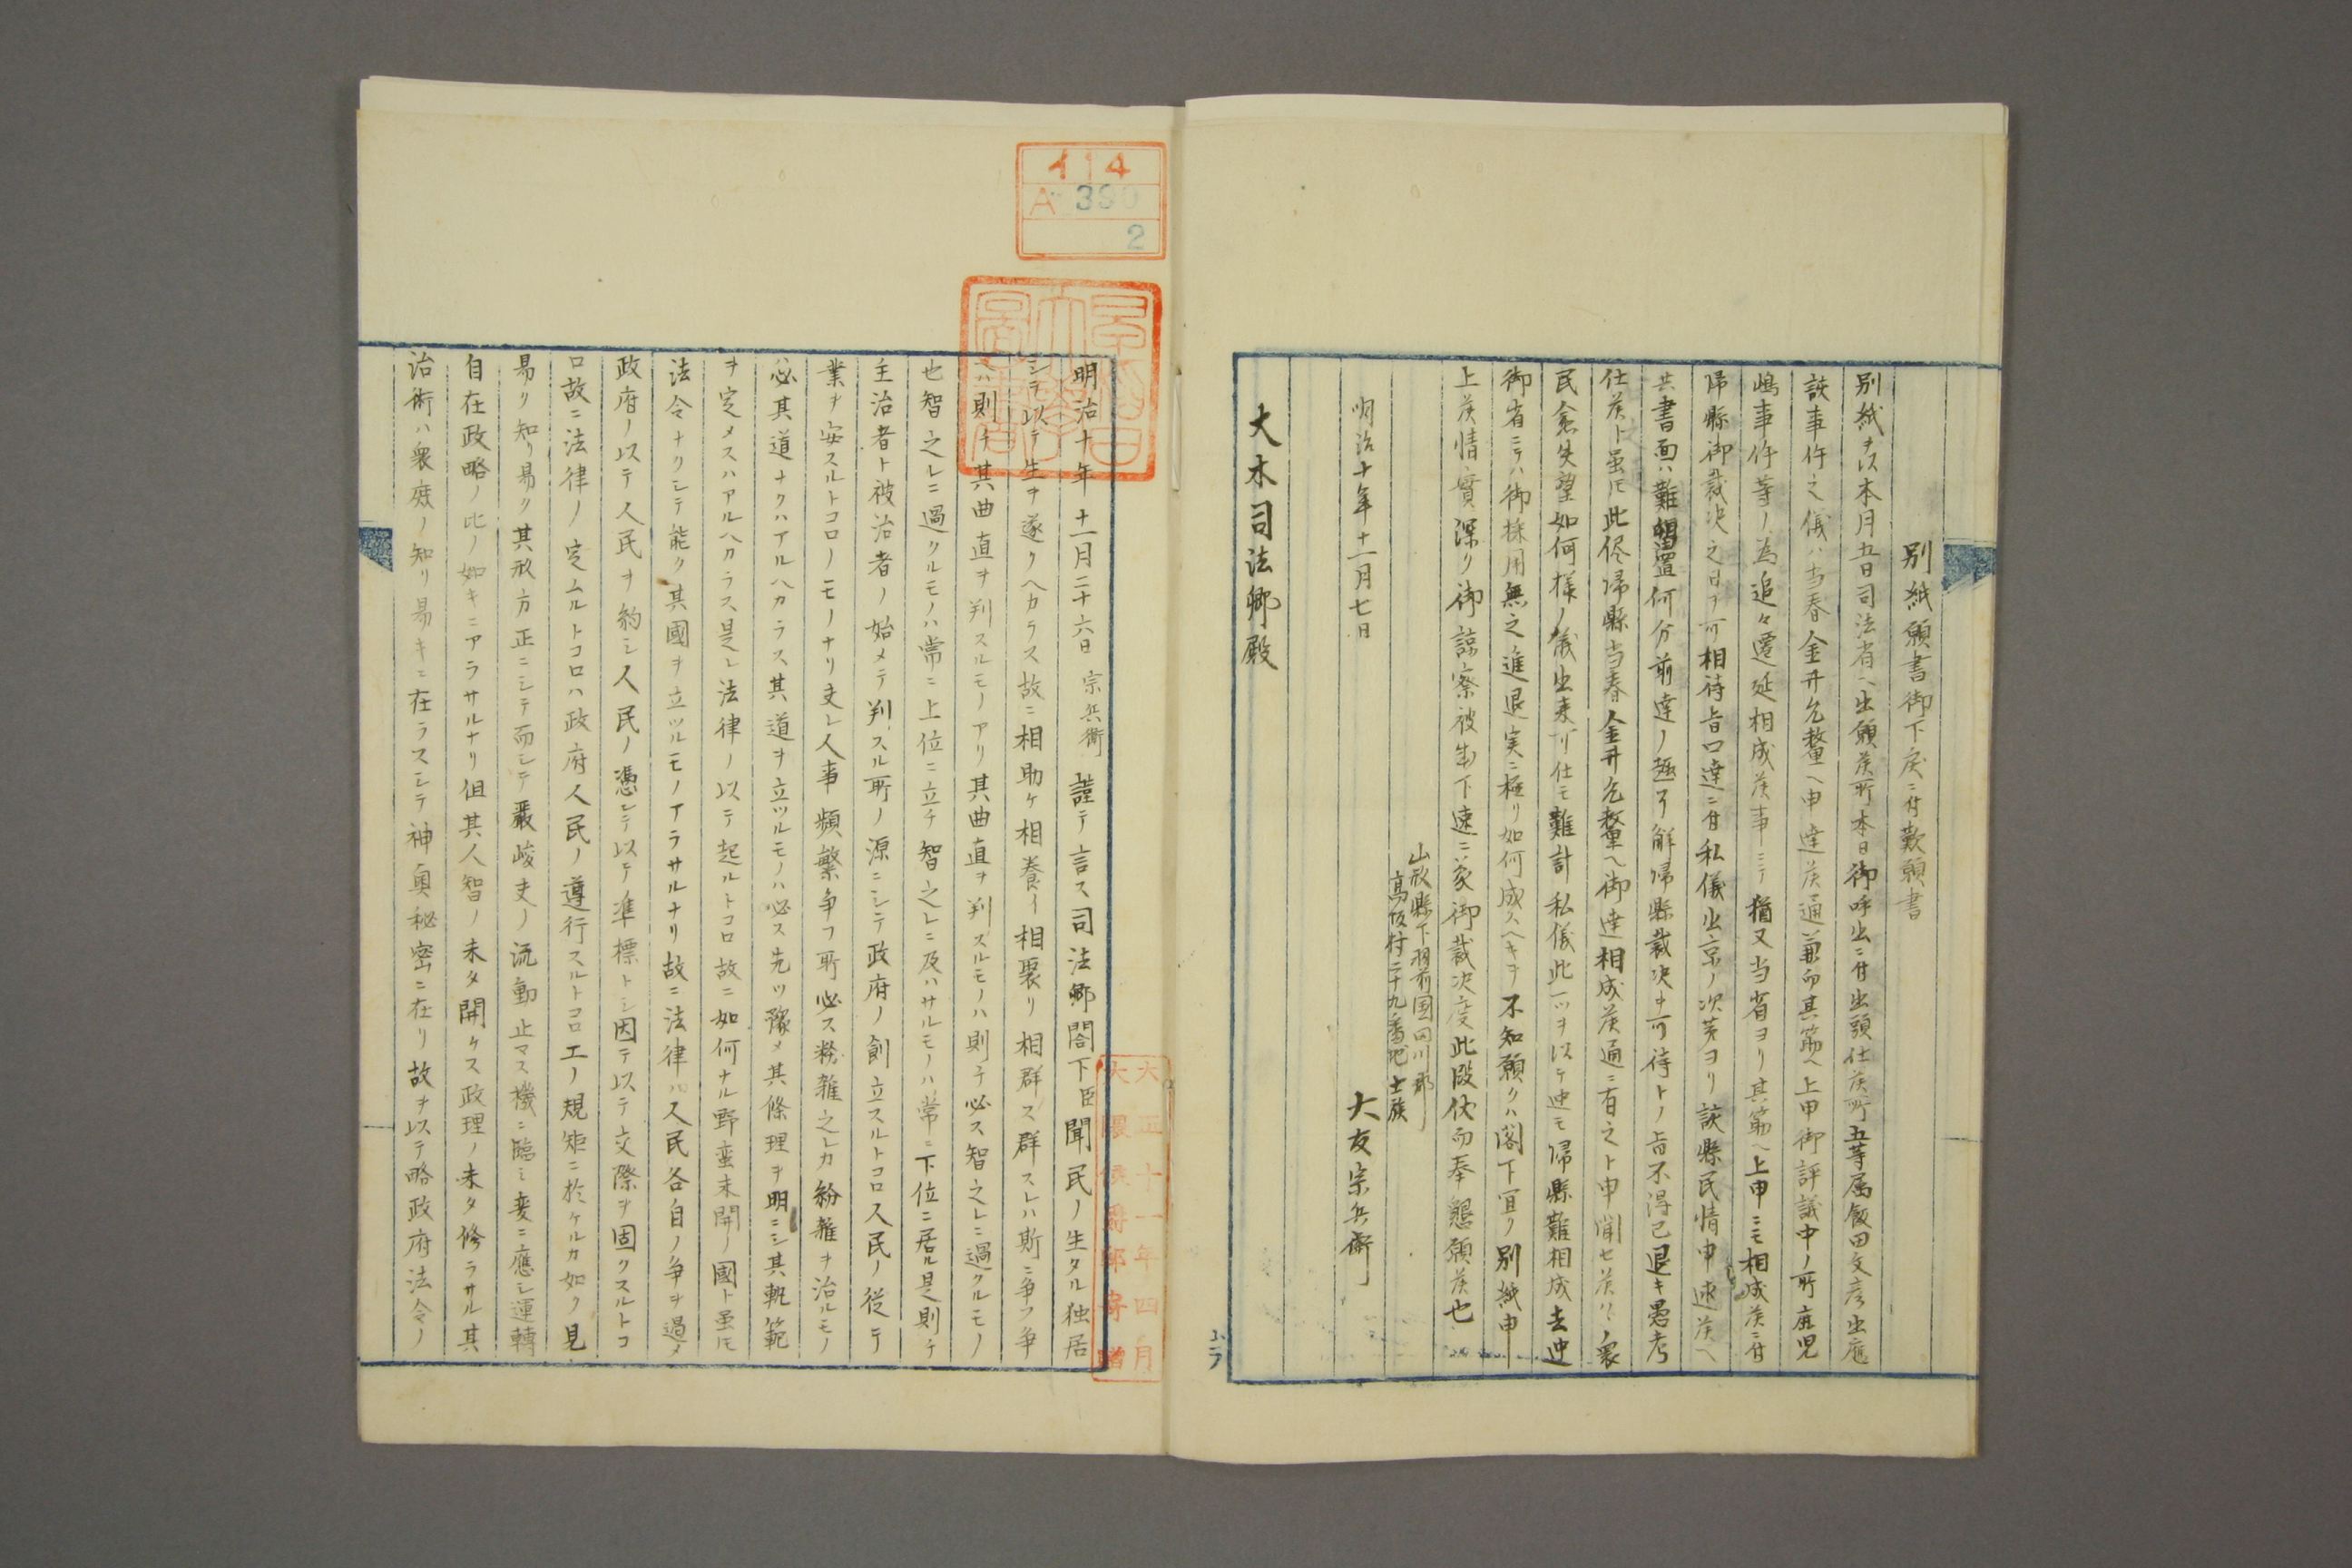 別紙願書御下戻ニ付歎願書
別紙ヲ以本月五日司法省ヘ出願候所本日御呼出ニ付出頭仕候所五等属飯田文彦出應
該事件之儀ハ当春金井允釐ヘ申達候通兼而其筋ヘ上申御評議中ノ所鹿児
嶋事件等ノ為追々遷延相成候事ニテ猶又当省ヨリ其筋ヘ上申ニモ相成候ニ付
帰縣御裁决之日ヲ可相待旨口達ニ付私儀出京ノ次第ヨリ該縣民情申述候ヘ
共書面ハ難留置何分前達ノ趣了觧帰縣裁决ヲ可待トノ旨不得已退キ愚考
仕候ト雖𪜈此侭帰縣当春金井允釐ヘ御達相成候通ニ有之ト申聞セ候ハヽ衆
民愈失望如何様ノ儀出来ﾘ仕モ難計私儀此一ツヲ以テ迚モ帰縣難相成去迚
御省ニテハ御採用無之進退実ニ極リ如何成スヘキヲ不知願クハ閣下宜ク別紙申
上候情實深ク御諒察被成下速ニ蒙御裁决度此段伏而奉懇願候也
山形縣下羽前国田川郡
高坂村二十九番地士族
大友宗兵衛
明治十年十一月七日
大木司法卿殿
明治十年十一月二十六日宗兵衛謹テ言ス司法卿閤下臣聞民ノ生タル独居
シテ以テ生ヲ遂クヘカラス故ニ相助ケ相養イ相聚リ相群ス群スレハ斯ニ争フ争
ヘハ則チ其曲直ヲ判スルモノアリ其曲直ヲ判スルモノハ則チ必ス智之レニ過クルモノ
也智之レニ過クルモノハ常ニ上位ニ立チ智之レニ及ハサルモノハ常ニ下位ニ居ル是則チ
主治者ト被治者ノ始メテ判スル所ノ源ニシテ政府ノ創立スルトコロ人民ノ従テ
業ヲ安スルトコロノモノナリ夫レ人事頻繁争フ所必ス務雑之レカ紛雑ヲ治ルモノ
必其道ナクハアルヘカラス其道ヲ立ツルモノハ必ス先ツ豫メ其條理ヲ明ニシ其軌範
ヲ定メスハアルヘカラス是レ法律ノ以テ起ルトコロ故ニ如何ナル野蛮未開ノ國ト雖𪜈
法令ナクシテ能ク其國ヲ立ツルモノアラサルナリ故ニ法律ハ人民各自ノ争ヲ過メ
政府ノ以テ人民ヲ約シ人民ノ憑シテ以テ準標トシ因テ以テ交際ヲ固クスルトコ
ロ故ニ法律ノ定ムルトコロハ政府人民ノ遵行スルトコロ工ノ規矩ニ於ケルカ如ク見
易ク知リ易ク其形方正ニシテ而シテ嚴峻夫ノ流動止マス機ニ臨ミ変ニ應シ運轉
自在政略ノ此ノ如キニアラサルナリ但其人智ノ未タ開ケス政理ノ未タ修ラサル其
治術ハ衆庶ノ知リ易キニ在ラスシテ神奥秘密ニ在リ故ヲ以テ略政府法令ノ
イ14
A 390
2
大正十一年四月
大隈侯爵邸寄贈